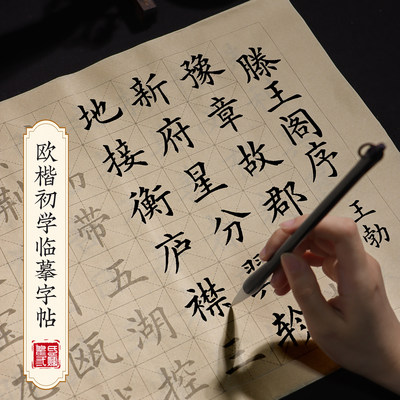 滕王阁序 王勃
豫章故郡
新府星分翼轸
地接衡庐襟三
带五湖控
荆
瓯
欧楷初学临摹字帖